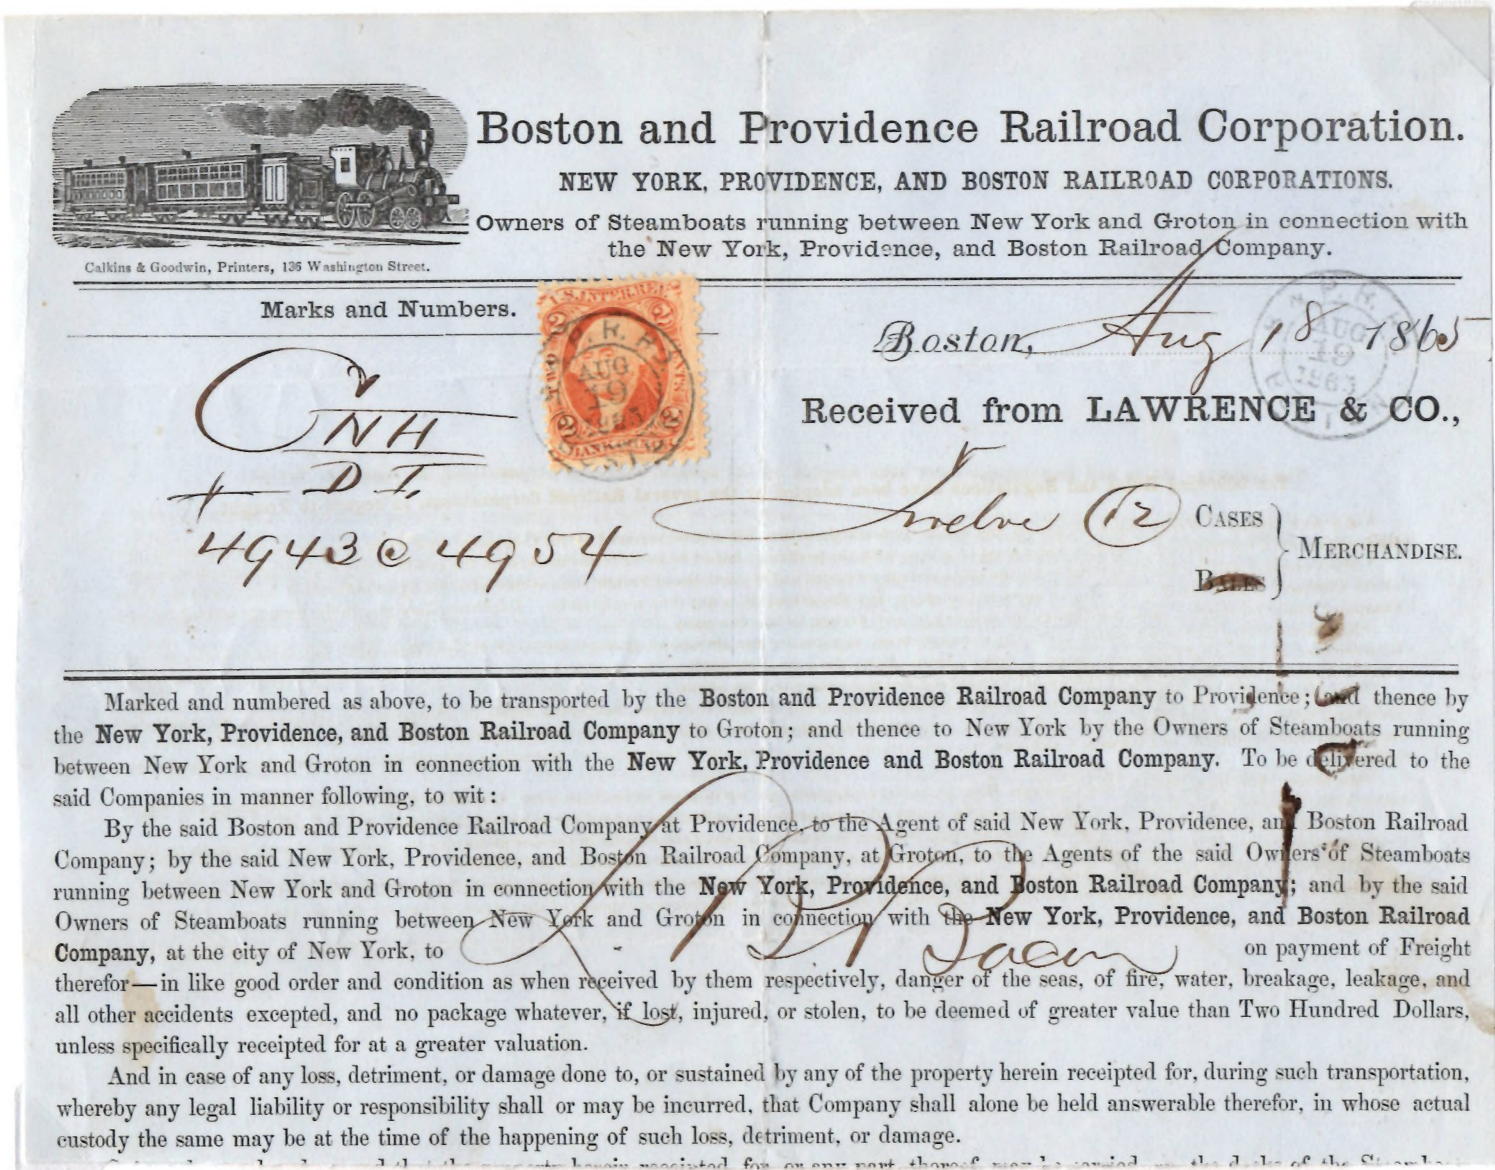 Boston and Providence Railroad Corporation.
NEW YORK, PROVIDENCE, AND BOSTON RAILROAD CORPORATIONS.
Owners of Steamboats running between New York and Groton in connection with
the New York, Providence, and Boston Railroad Company.
Calkins & Goodwin, Printers, 136 Washington Street.
Marks and Numbers.
U.S. INTER. REV.
2 2
AUG
19
2 2
Boston, Aug 18 1865
AUG
19
1865
Received from LAWRENCE & CO.,
NH
D I.
4943 @ 4954
Twelve (12) CASES
BALES
MERCHANDISE.
Marked and numbered as above, to be transported by the Boston and Providence Railroad Company to Providence; and thence by
the New York, Providence, and Boston Railroad Company to Groton; and thence to New York by the Owners of Steamboats running
between New York and Groton in connection with the New York, Providence and Boston Railroad Company. To be delivered to the
said Companies in manner following, to wit:
By the said Boston and Providence Railroad Company at Providence, to the Agent of said New York, Providence, and Boston Railroad
Company; by the said New York, Providence, and Boston Railroad Company, at Groton, to the Agents of the said Owners of Steamboats
running between New York and Groton in connection with the New York, Providence, and Boston Railroad Company; and by the said
Owners of Steamboats running between New York and Groton in connection with the New York, Providence, and Boston Railroad
Company, at the city of New York, to on payment of Freight
therefor—in like good order and condition as when received by them respectively, danger of the seas, of fire, water, breakage, leakage, and
all other accidents excepted, and no package whatever, if lost, injured, or stolen, to be deemed of greater value than Two Hundred Dollars,
unless specifically receipted for at a greater valuation.
And in case of any loss, detriment, or damage done to, or sustained by any of the property herein receipted for, during such transportation,
whereby any legal liability or responsibility shall or may be incurred, that Company shall alone be held answerable therefor, in whose actual
custody the same may be at the time of the happening of such loss, detriment, or damage.